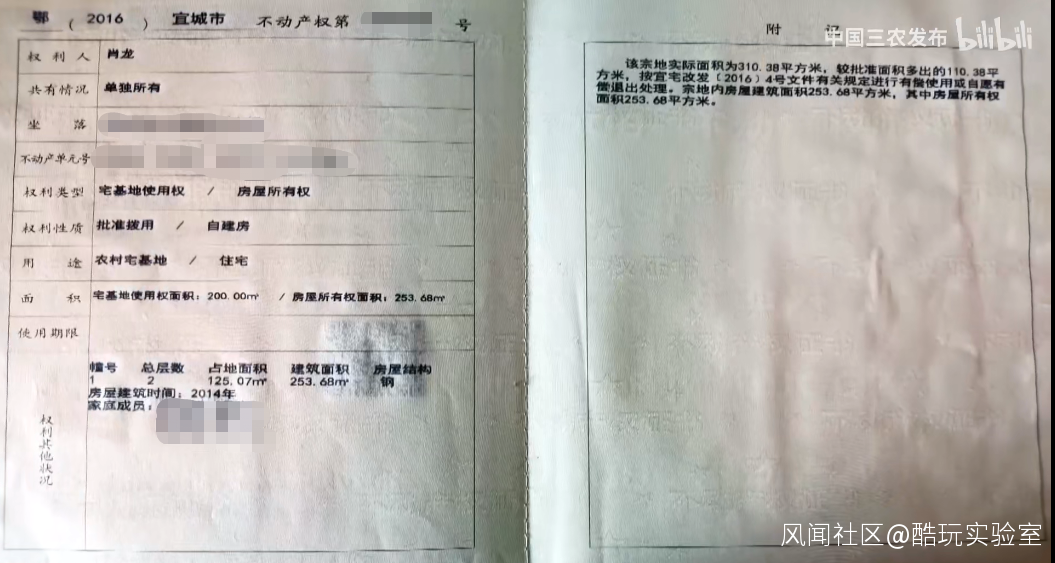 鄂 ( 2016 ) 宜城市 不动产权第 号
权利人 肖龙
共有情况 单独所有
坐落
不动产单元号
权利类型 宅基地使用权 / 房屋所有权
权利性质 批准拨用 / 自建房
用途 农村宅基地 / 住宅
面积 宅基地使用权面积：200.00㎡ / 房屋所有权面积：253.68㎡
使用期限
权利其他状况
幢号 总层数 占地面积 建筑面积 房屋结构
1 2 125.07㎡ 253.68㎡ 钢
房屋建筑时间：2014年
家庭成员：
附 记
中国三农发布 bilibili
该宗地实际面积为310.38平方米，较批准面积多出的110.38平
方米，按宜宅改发〔2016〕4号文件有关规定进行有偿使用或自愿有
偿退出处理。宗地内房屋建筑面积253.68平方米，其中房屋所有权
面积253.68平方米。
风闻社区@酷玩实验室